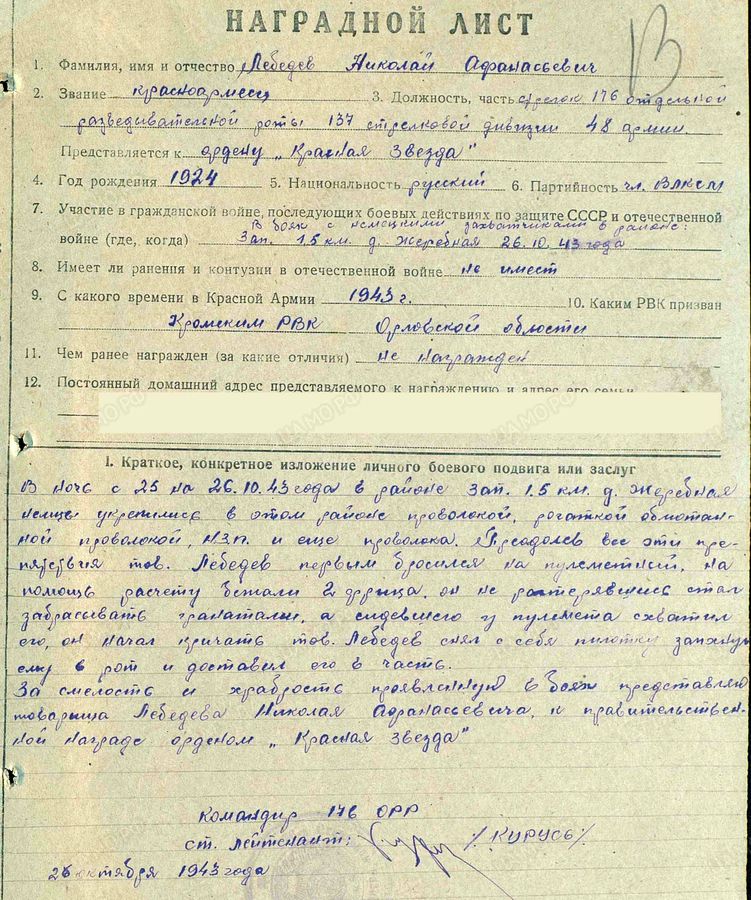 НАГРАДНОЙ ЛИСТ
1. Фамилия, имя и отчество Лебедев Николай Афанасьевич
2. Звание красноармеец 3. Должность, часть стрелок 176 отдельной
разведывательной роты 137 стрелковой дивизии 48 армии.
Представляется к ордену „Красная Звезда"
4. Год рождения 1924 5. Национальность русский 6. Партийность чл. ВЛКСМ
7. Участие в гражданской войне, последующих боевых действиях по защите СССР и отечественной
В боях с немецкими захватчиками в районе:
войне (где, когда) Зап. 1.5 км. д. Жеребная 26.10.43 года
8. Имеет ли ранения и контузии в отечественной войне не имеет
9. С какого времени в Красной Армии 1943 г. 10. Каким РВК призван
Кромским РВК Орловской области
11. Чем ранее награжден (за какие отличия) не награжден
12. Постоянный домашний адрес представляемого к награждению и адрес его семьи
I. Краткое, конкретное изложение личного боевого подвига или заслуг
В ночь с 25 на 26.10.43 года в районе Зап. 1.5 км. д. Жеребная
немцы укрепились в этом районе проволокой, рогаткой обмотан-
ной проволокой, НЗП. и еще проволока. Преодолев все эти пре-
пятствия тов. Лебедев первым бросился на пулеметный, на
помощь расчету встали 2 фрица, он не растерявшись стал
забрасывать гранатами, а сидевшего у пулемета схватил
его, он начал кричать тов. Лебедев снял с себя пилотку запхнул
ему в рот и доставил его в часть.
За смелость и храбрость проявленную в боях представляю
товарища Лебедева Николая Афанасьевича, к правительствен-
ной награде орденом „Красная Звезда"
Командир 176 ОРР
ст. лейтенант: /КУРУСЬ/
26 октября 1943 года